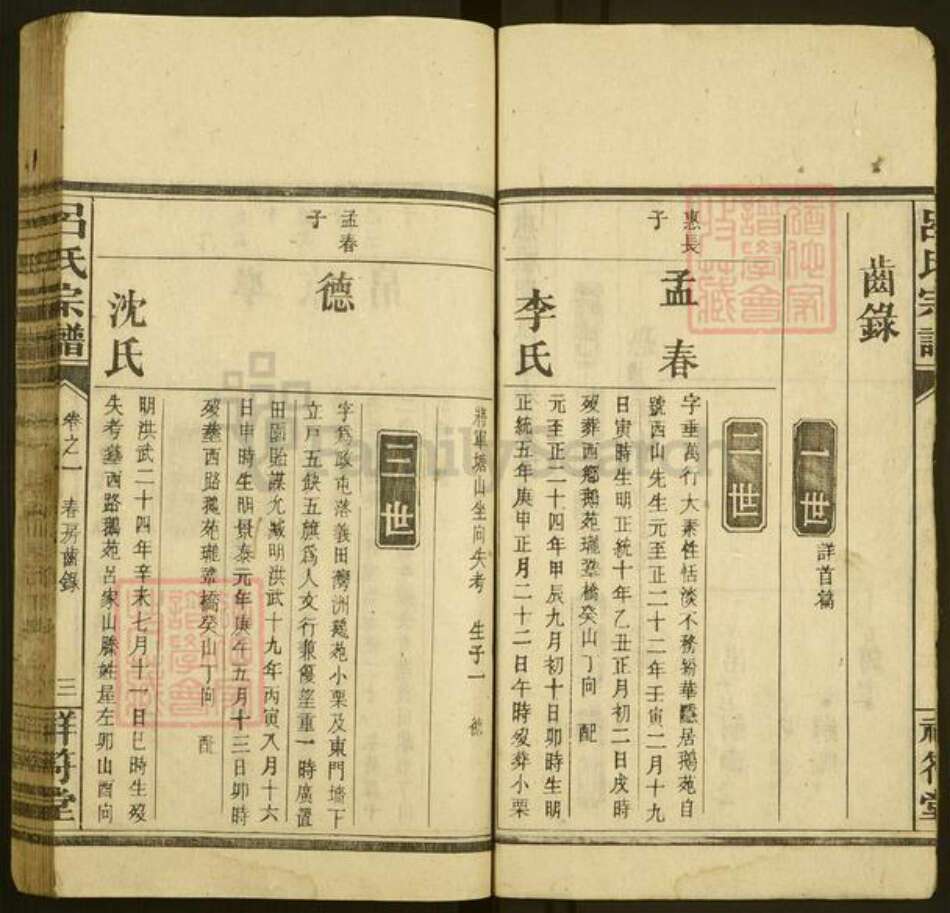 呂氏宗譜
祥符堂
齒錄
一世
詳首篇
二世
惠長子
孟春
字垂萬行大素性恬淡不務紛華隱居鵝苑自
號西山先生元至正二十二年壬寅二月十九
日寅時生明正統十年乙丑正月初二日戌時
歿葬西鄉鵝苑瓏蛩橋癸山丁向 配
李氏
元至正二十四年甲辰九月初十日卯時生明
正統五年庚申正月二十二日午時歿葬小栗
將軍塘山坐向失考 生子一 德
三世
孟春子
德
字為政屯落義田灣洲鵝苑小栗及東門墻下
立戸五缺五旗為人文行兼優望重一時廣置
田園貽謀允臧明洪武十九年丙寅八月十六
日申時生明景泰元年庚午五月十三日卯時
歿塟西路鵝苑瓏蛩橋癸山丁向 配
沈氏
明洪武二十四年辛未七月十一日巳時生歿
失考塟西路鵝苑呂家山滕姓屋左卯山酉向
呂氏宗譜
卷之一 春房齒錄 三
祥符堂